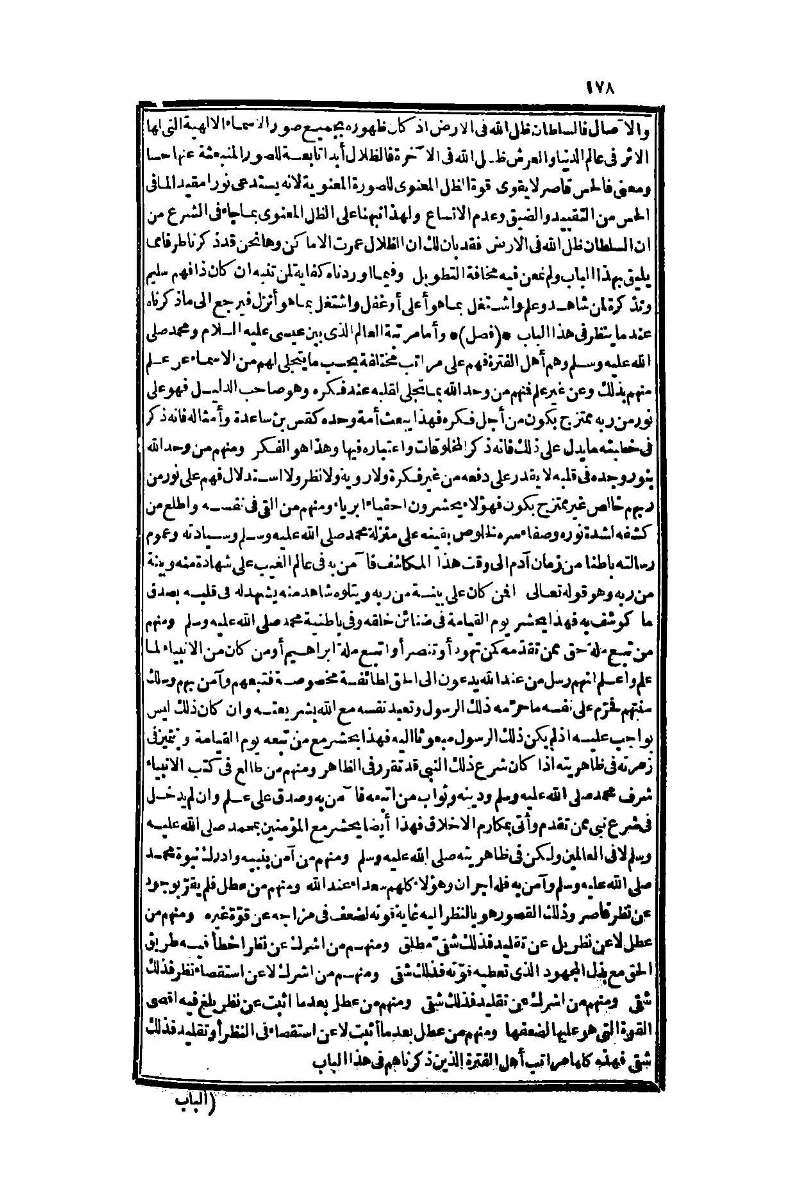 ١٧٨
والآصال فالسلطان ظل الله فى الارض اذ كان ظهوره بجميع صور الاسماء الالهية التى لها
الاثر فى عالم الدنيا والعرش ظل الله فى الآخرة فالظلال أبدا تابعة للصور المنبعثة عنها حسا
ومعنى فالحس قاصر لا يقوى قوة الظل المعنوى للصورة المعنوية لانه يستدعى نورا مقيدا لما فى
الحس من التقييد والضيق وعدم الاتساع ولهذا نبهنا على الظل المعنوى بما جاء فى الشرع من
ان السلطان ظل الله فى الارض فقد بان لك ان الظلال عمرت الاماكن وها نحن قد ذكرنا طرفا مما
يليق بهذا الباب ولم نمعن فيه مخافة التطويل وفيما اوردناه كفاية لمن تنبه ان كان ذا فهم سليم
وتذكرة لمن شاهد وعلم واشتغل بما هو أعلى أو غفل واشتغل بما هو أنزل فيرجع الى ما ذكرناه
عند ما ينظر فى هذا الباب *(فصل)* وأما مرتبة العالم الذى بين عيسى عليه السلام ومحمد صلى
الله عليه وسلم وهم أهل الفترة فهم على مراتب مختلفة بحسب ما يتجلى لهم من الاسماء عن علم
منهم بذلك وعن غير علم فمنهم من وحد الله بما تجلى لقلبه عند فكره وهو صاحب الدليل فهو على
نور من ربه ممتزج بكون من أجل فكره فهذا يبعث أمة وحده كقس بن ساعدة وأمثاله فانه ذكر
فى خطبته ما يدل على ذلك فانه ذكر المخلوقات واعتباره فيها وهذا هو الفكر ومنهم من وحد الله
بنور وجده فى قلبه لا يقدر على دفعه من غير فكرة ولا روية ولا نظر ولا استدلال فهم على نور من
ربهم خالص غير ممتزج بكون فهؤلاء يحشرون احفياء ابرياء ومنهم من القى فى نفسه واطلع من
كشفه لشدة نوره وصفاء سره لخلوص يقينه على منزلة محمد صلى الله عليه وسلم وسيادته وعموم
رسالته باطنا من زمان آدم الى وقت هذا المكاشف فآمن به فى عالم الغيب على شهادة منه وبينة
من ربه وهو قوله تعالى افمن كان على بينة من ربه ويتلوه شاهد منه يشهد له فى قلبه بصدق
ما كوشف به فهذا يحشر يوم القيامة فى ضنائن خلقه وفى باطنية محمد صلى الله عليه وسلم ومنهم
من تبع ملة حق ممن تقدمه كمن تهود أو تنصر أو اتبع ملة ابراهيم أو من كان من الانبياء لما
علم واعلم انهم رسل من عند الله يدعون الى الحق لطائفة مخصوصة فتبعهم وآمن بهم وسلك
سنتهم فحرم على نفسه ما حرمه ذلك الرسول وتعبد نفسه مع الله بشريعته وان كان ذلك ليس
بواجب عليه اذ لم يكن ذلك الرسول مبعوثا اليه فهذا يحشر مع من تبعه يوم القيامة ويتميز فى
زمرته فى ظاهريته اذا كان شرع ذلك النبى قد تقرر فى الظاهر ومنهم من طالع فى كتب الانبياء
شرف محمد صلى الله عليه وسلم ودينه وثواب من اتبعه فآمن به وصدق على علم وان لم يدخل
فى شرع نبى ممن تقدم وأتى بمكارم الاخلاق فهذا أيضا يحشر مع المؤمنين بمحمد صلى الله عليه
وسلم لا فى العالمين ولكن فى ظاهريته صلى الله عليه وسلم ومنهم من آمن بنبيه وادرك نبوة محمد
صلى الله عليه وسلم وآمن به فله اجران وهؤلاء كلهم سعداء عند الله ومنهم من عطل فلم يقر بوجود
عن نظر قاصر وذلك القصور هو بالنظر اليه غاية قوته لضعف فى مزاجه عن قوة غيره ومنهم من
عطل لا عن نظر بل عن تقليد فذلك شقى مطلق ومنهم من اشرك عن نظر اخطأ فيه طريق
الحق مع بذل المجهود الذى تعطيه قوته فذلك شقى ومنهم من اشرك لا عن استقصاء نظر فذلك
شقى ومنهم من اشرك عن تقليد فذلك شقى ومنهم من عطل بعد ما اثبت عن نظر بلغ فيه اقصى
القوة التى هو عليها لضعفها ومنهم من عطل بعد ما أثبت لا عن استقصاء فى النظر أو تقليد فذلك
شقى فهذه كلها مراتب أهل الفترة الذين ذكرناهم فى هذا الباب
(الباب